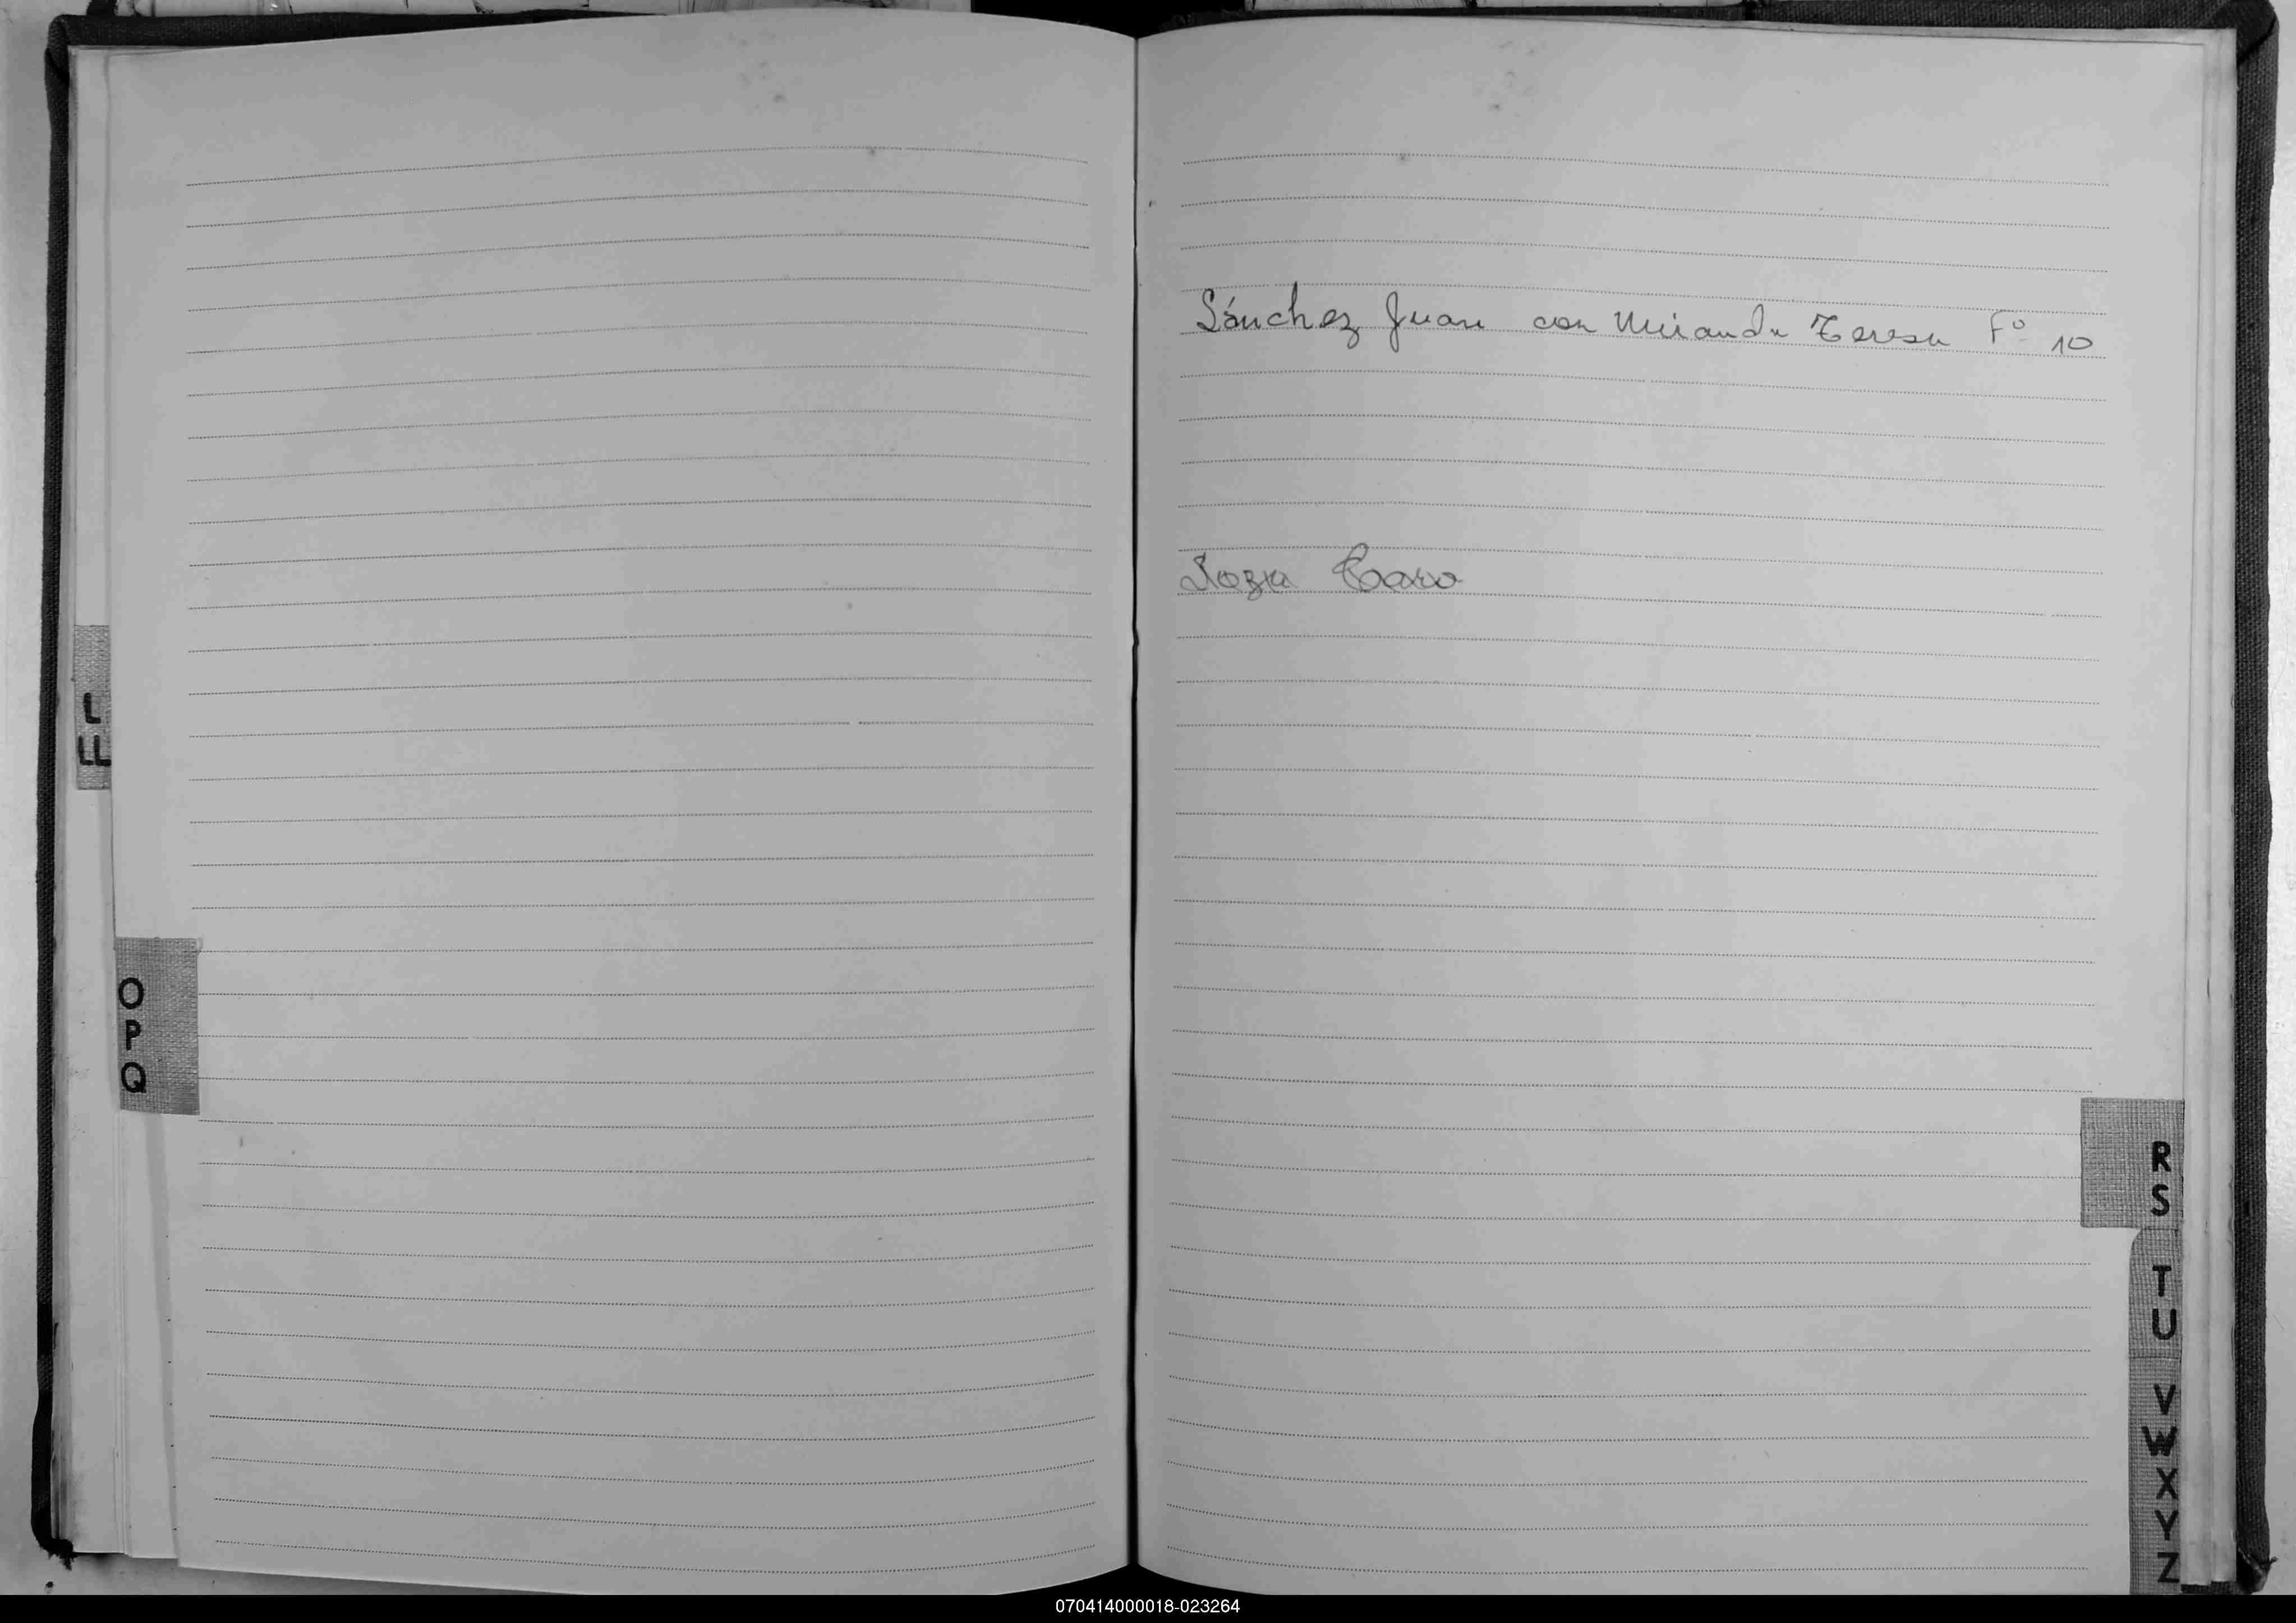 Sánchez Juan con Miranda Teresa Fº 10
L
LL
O
P
Q
R
S
T
U
V
W
X
Y
Z
070414000018-023264